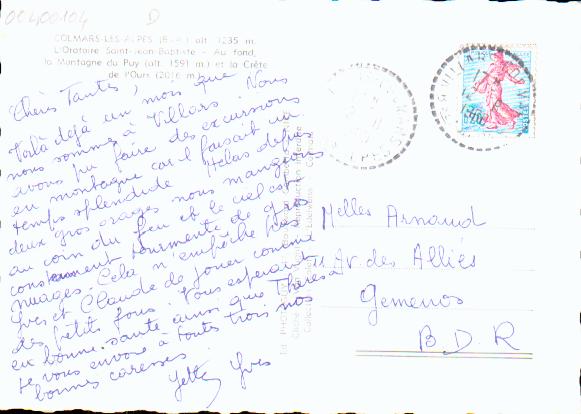 00400104 D
COLMARS-LES-ALPES (B.-A.) alt. 1235 m.
L'Oratoire Saint-Jean Baptiste - Au fond,
la Montagne du Puy (alt. 1591 m.) et la Crête
de l'Ours (2016 m.)
Chères Tantes,
Voilà déjà un mois que
nous sommes à Villars. Nous
avons pu faire des excursions
en montagne car il faisait un
temps splendide. Hélas depuis
deux gros orages nous mangeons
au coin du feu et le ciel est
constamment tourmenté de gros
nuages. Cela n'empêche pas
Yves et Claude de jouer comme
des petits fous. Vous espérant
en bonne santé ainsi que Thérèse
je vous envoie à toutes trois nos
bonnes caresses
Yette Yves
Melles Arnaud
Av. des Alliés
Gemenos
B D R